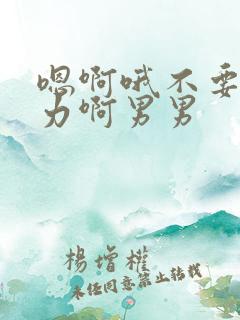 嗯啊哦不要
力啊男男
楊增權
未经同意禁止转载